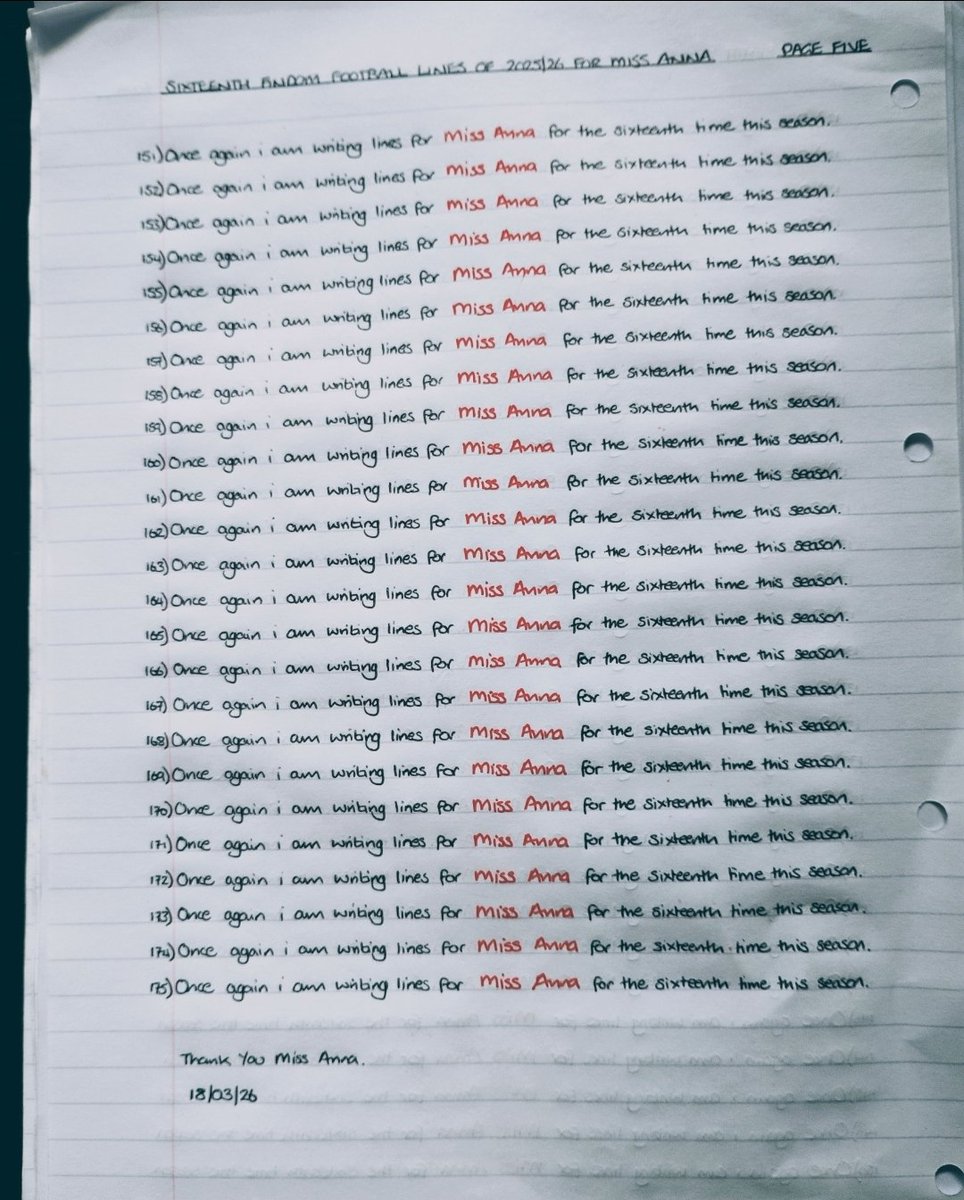 SIXTEENTH FINDOM FOOTBALL LINES OF 2025/26 FOR MISS ANNA PAGE FIVE
151) Once again i am writing lines for Miss Anna for the sixteenth time this season.
152) Once again i am writing lines for Miss Anna for the sixteenth time this season.
153) Once again i am writing lines for Miss Anna for the sixteenth time this season.
154) Once again i am writing lines for Miss Anna for the sixteenth time this season.
155) Once again i am writing lines for Miss Anna for the sixteenth time this season.
156) Once again i am writing lines for Miss Anna for the sixteenth time this season.
157) Once again i am writing lines for Miss Anna for the sixteenth time this season.
158) Once again i am writing lines for Miss Anna for the sixteenth time this season.
159) Once again i am writing lines for Miss Anna for the sixteenth time this season.
160) Once again i am writing lines for Miss Anna for the sixteenth time this season.
161) Once again i am writing lines for Miss Anna for the sixteenth time this season.
162) Once again i am writing lines for Miss Anna for the sixteenth time this season.
163) Once again i am writing lines for Miss Anna for the sixteenth time this season.
164) Once again i am writing lines for Miss Anna for the sixteenth time this season.
165) Once again i am writing lines for Miss Anna for the sixteenth time this season.
166) Once again i am writing lines for Miss Anna for the sixteenth time this season.
167) Once again i am writing lines for Miss Anna for the sixteenth time this season.
168) Once again i am writing lines for Miss Anna for the sixteenth time this season.
169) Once again i am writing lines for Miss Anna for the sixteenth time this season.
170) Once again i am writing lines for Miss Anna for the sixteenth time this season.
171) Once again i am writing lines for Miss Anna for the sixteenth time this season.
172) Once again i am writing lines for Miss Anna for the sixteenth time this season.
173) Once again i am writing lines for Miss Anna for the sixteenth time this season.
174) Once again i am writing lines for Miss Anna for the sixteenth time this season.
175) Once again i am writing lines for Miss Anna for the sixteenth time this season.
Thank You Miss Anna.
18/03/26